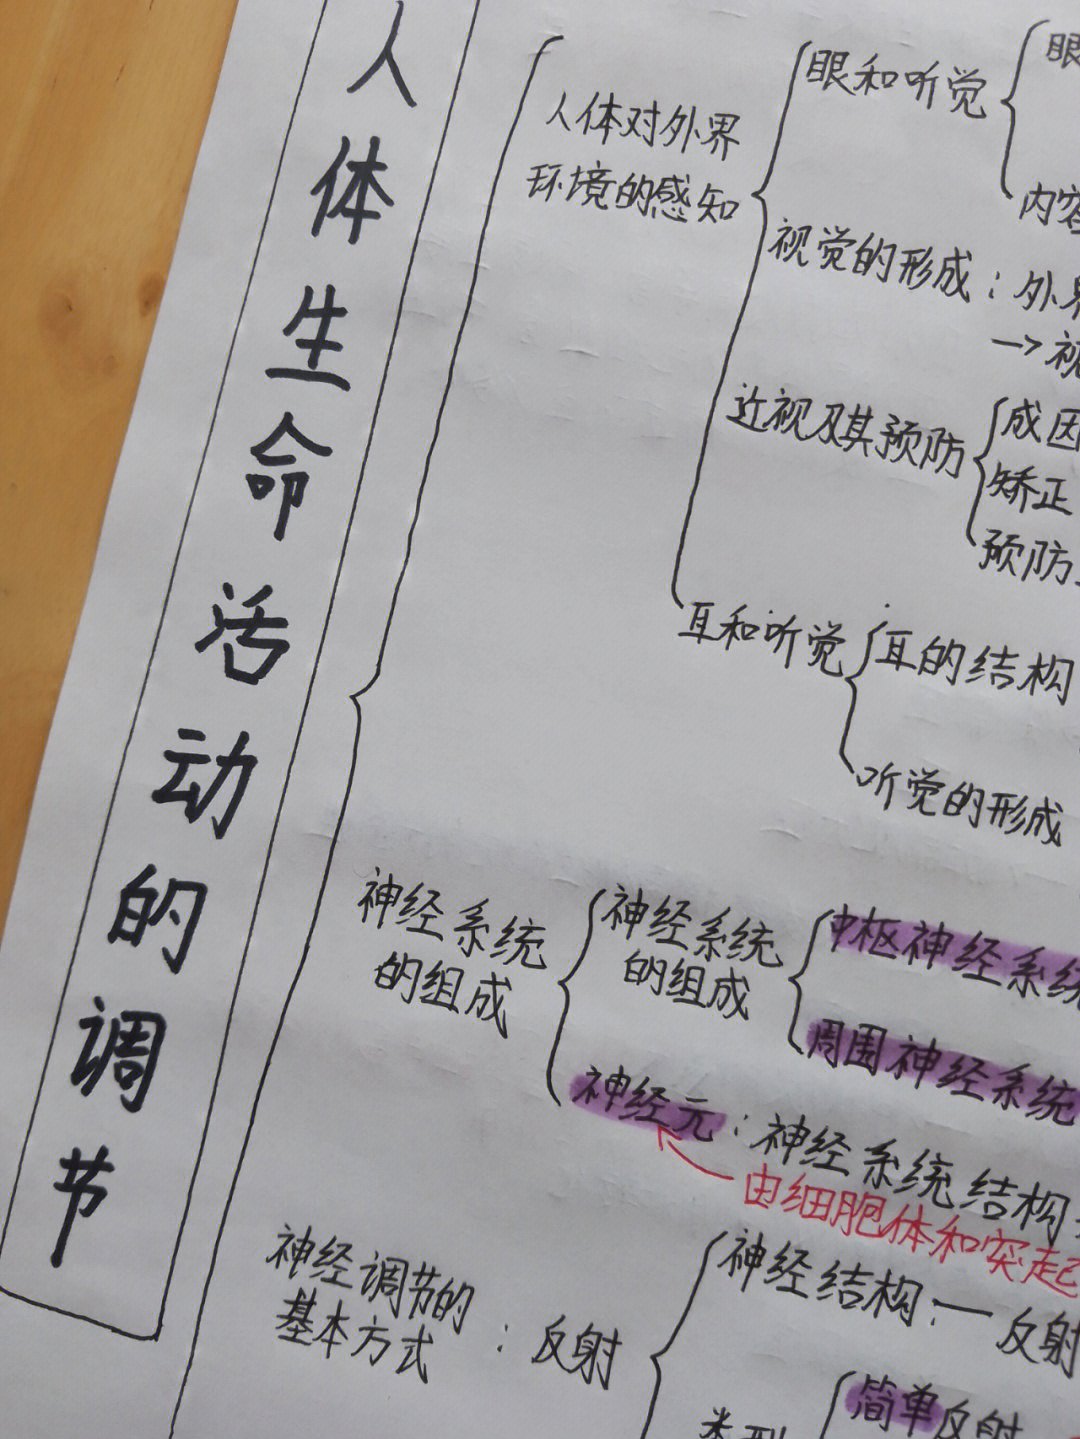 人体生命活动的调节
人体对外界
环境的感知
眼和听觉
眼
内容
视觉的形成：外界
→视
近视及其预防
成因
矫正
预防
耳和听觉
耳的结构
听觉的形成
神经系统
的组成
神经系统
的组成
中枢神经系统
周围神经系统
神经元：神经系统结构
由细胞体和突起
神经调节的
基本方式：反射
神经结构：一反射
类型
简单反射